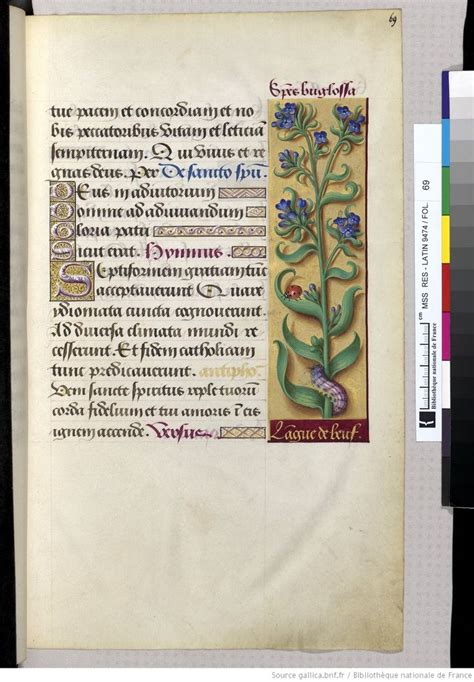 69
Sp̄es buglossa
tue pacem et concordiam et no
bis peccatoribus vitam et leticiā
sempiternam. Qui viuis et re
gnas deus. Per De sancto spū.
Deus in adiutorium
Domine ad adiuuandum
Gloria patri
Sicut erat. Hymnus.
Septiformem gratiam tūc
acceptauerunt Quare
ydiomata cuncta cognouerunt.
Ad diuersa climata mundi re
cesserunt. Et fidem catholicam
tunc predicauerunt. antipho.
Veni sancte spiritus reple tuorū
corda fidelium et tui amoris ī eis
ignem accende. Versus.
Lāgue de beuf.
MSS RES - LATIN 9474 / FOL. 69
cm
Bibliothèque nationale de France
Source gallica.bnf.fr / Bibliothèque nationale de France